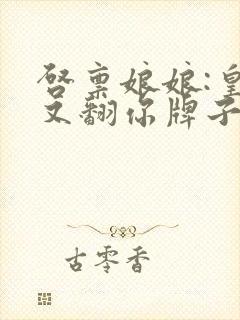 启禀娘娘:皇
又翻你牌子
古零香